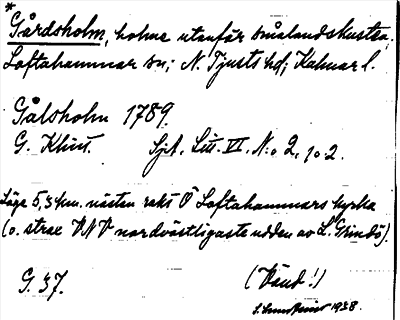 * Gårdsholm, holme utanför smålandskusten.
Loftahammar sn; N. Tjusts hd; Kalmar l.
Gålsholm 1789.
G. Klint. Sjk. Litt. VI. N:o 2, 
Läge 5,3 km. nästan rakt Ö Loftahammars kyrka
(o. strax VNV nordvästligaste udden av L. Grindö).
G. 37. (Vänd!)
1938.